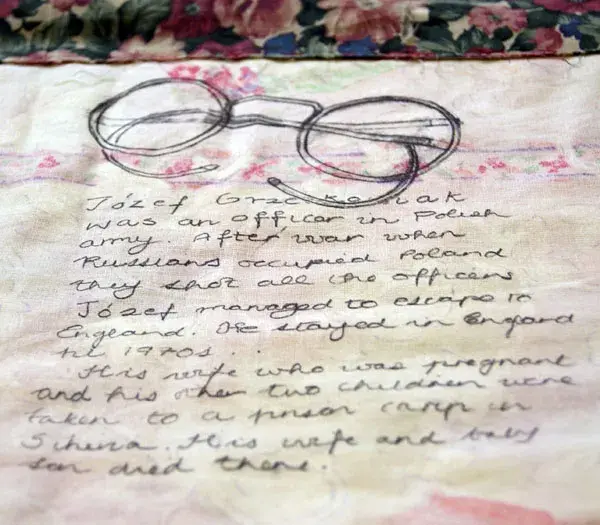 Józef Grze
was an officer in Polish
army. After war when
Russians occupied Poland
they shot all the officers
Józef managed to escape to
England. He stayed in England
till 1970s ..
His wife who was pregnant
and his other two children were
taken to a prison camp in
Siberia. His wife and baby
son died there.